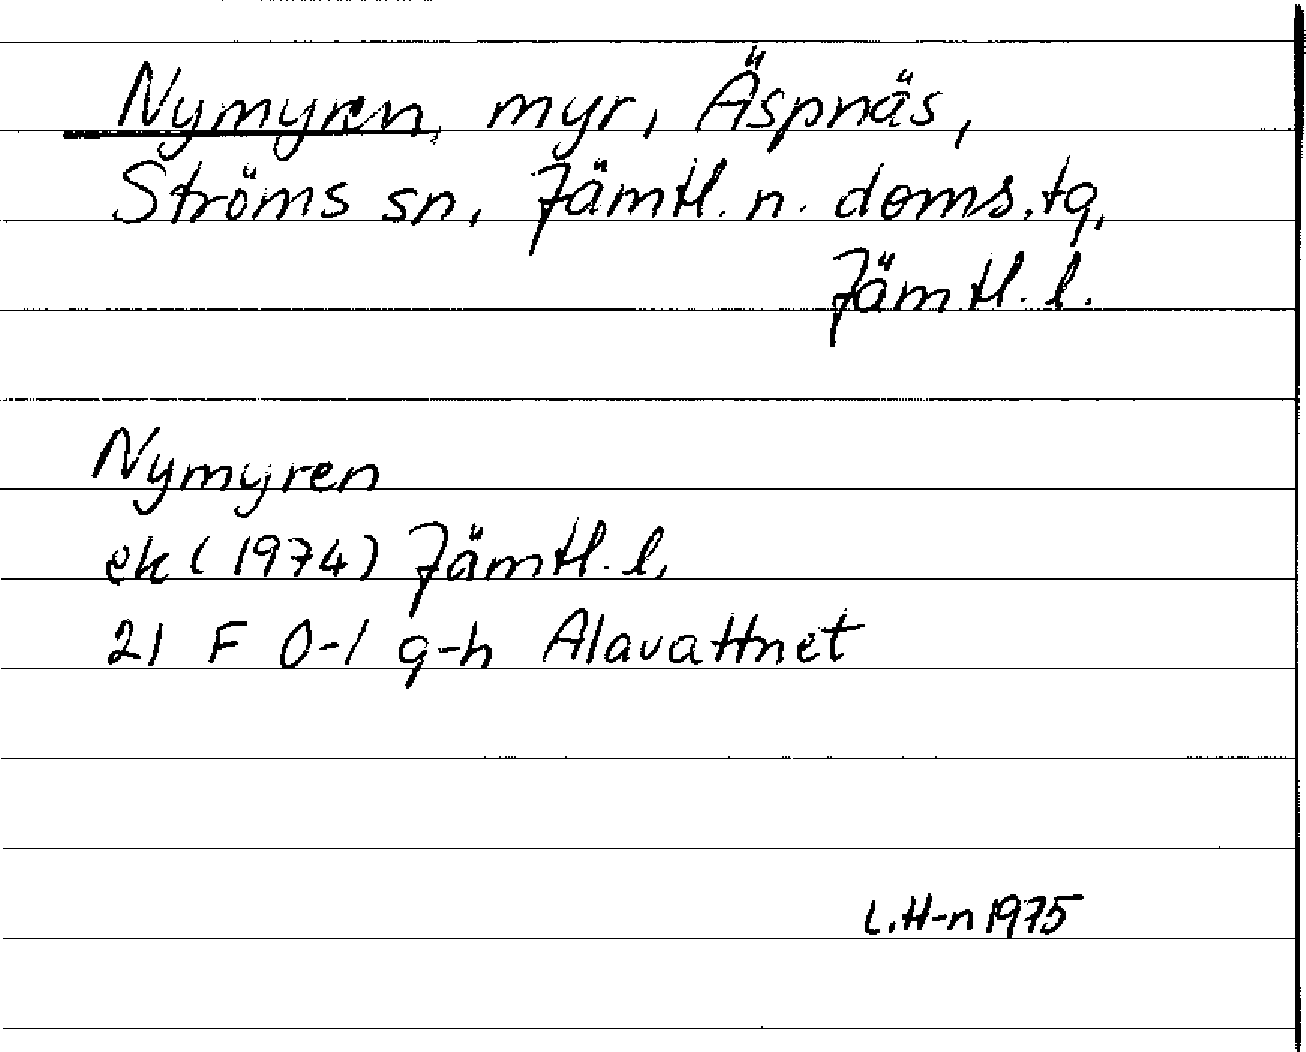 Nymyren, myr, Äspnäs,
Ströms sn, Jämtl. n. doms. tg,
Jämtl. l.
Nymyren
ek (1974) Jämtl. l.
21 F 0-1 g-h Alavattnet
L.H-n 1975